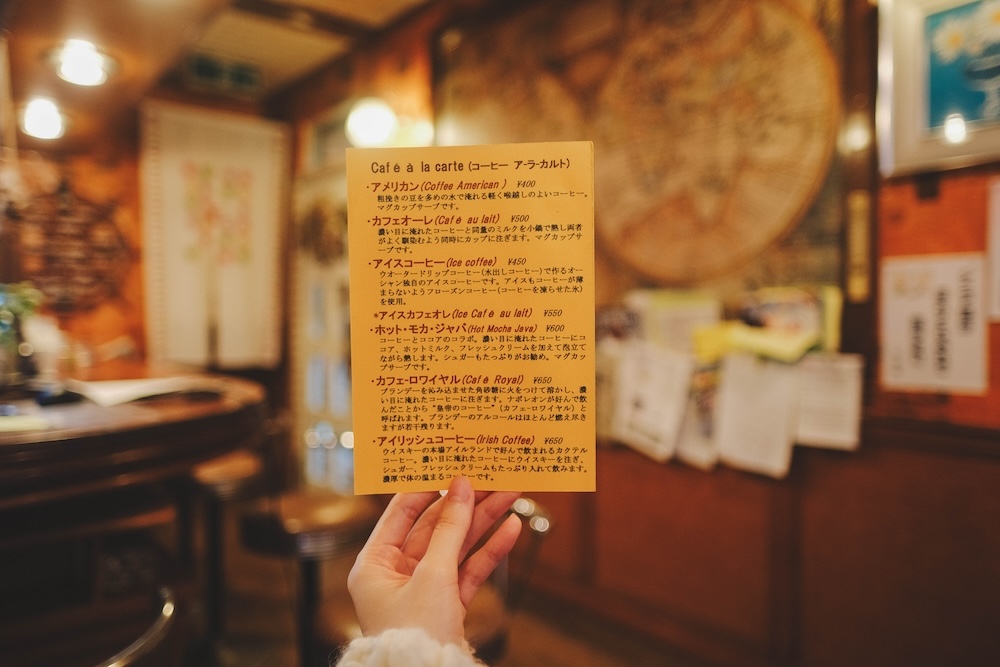 Café à la carte (コーヒー ア-ラ-カルト)
・アメリカン(Coffee American) ¥400
粗挽きの豆を多めの水で淹れる軽く喉越しのよいコーヒー。
マグカップサーブです。
・カフェオーレ(Café au lait) ¥500
濃い目に淹れたコーヒーと同量のミルクを小鍋で熱し両者
がよく馴染むよう同時にカップに注ぎます。マグカップサ
ーブです。
・アイスコーヒー(Ice coffee) ¥450
ウオータードリップコーヒー(水出しコーヒー)で作るオー
シャン独自のアイスコーヒーです。アイスもコーヒーが薄
まらないようフローズンコーヒー(コーヒーを凍らせた氷)
を使用。
*アイスカフェオレ(Ice Café au lait) ¥550
・ホット・モカ・ジャバ(Hot Mocha Java) ¥600
コーヒーとココアのコラボ。濃い目に淹れたコーヒーにコ
コア、ホットミルク、フレッシュクリームを加えて泡立て
ながら熱します。シュガーもたっぷりがお勧め。マグカッ
プサーブです。
・カフェ・ロワイヤル(Café Royal) ¥650
ブランデーを沁み込ませた角砂糖に火をつけて溶かし、濃
い目に淹れたコーヒーに注ぎます。ナポレオンが好んで飲
んだことから"皇帝のコーヒー"(カフェ-ロワイヤル)と
呼ばれます。ブランデーのアルコールはほとんど燃え尽き
ますが若干残ります。
・アイリッシュコーヒー(Irish Coffee) ¥650
ウイスキーの本場アイルランドで好んで飲まれるカクテル
コーヒー。濃い目に淹れたコーヒーにウイスキーを注ぎ、
シュガー、フレッシュクリームもたっぷり入れて飲みます。
濃厚で体の温まるコーヒーです。